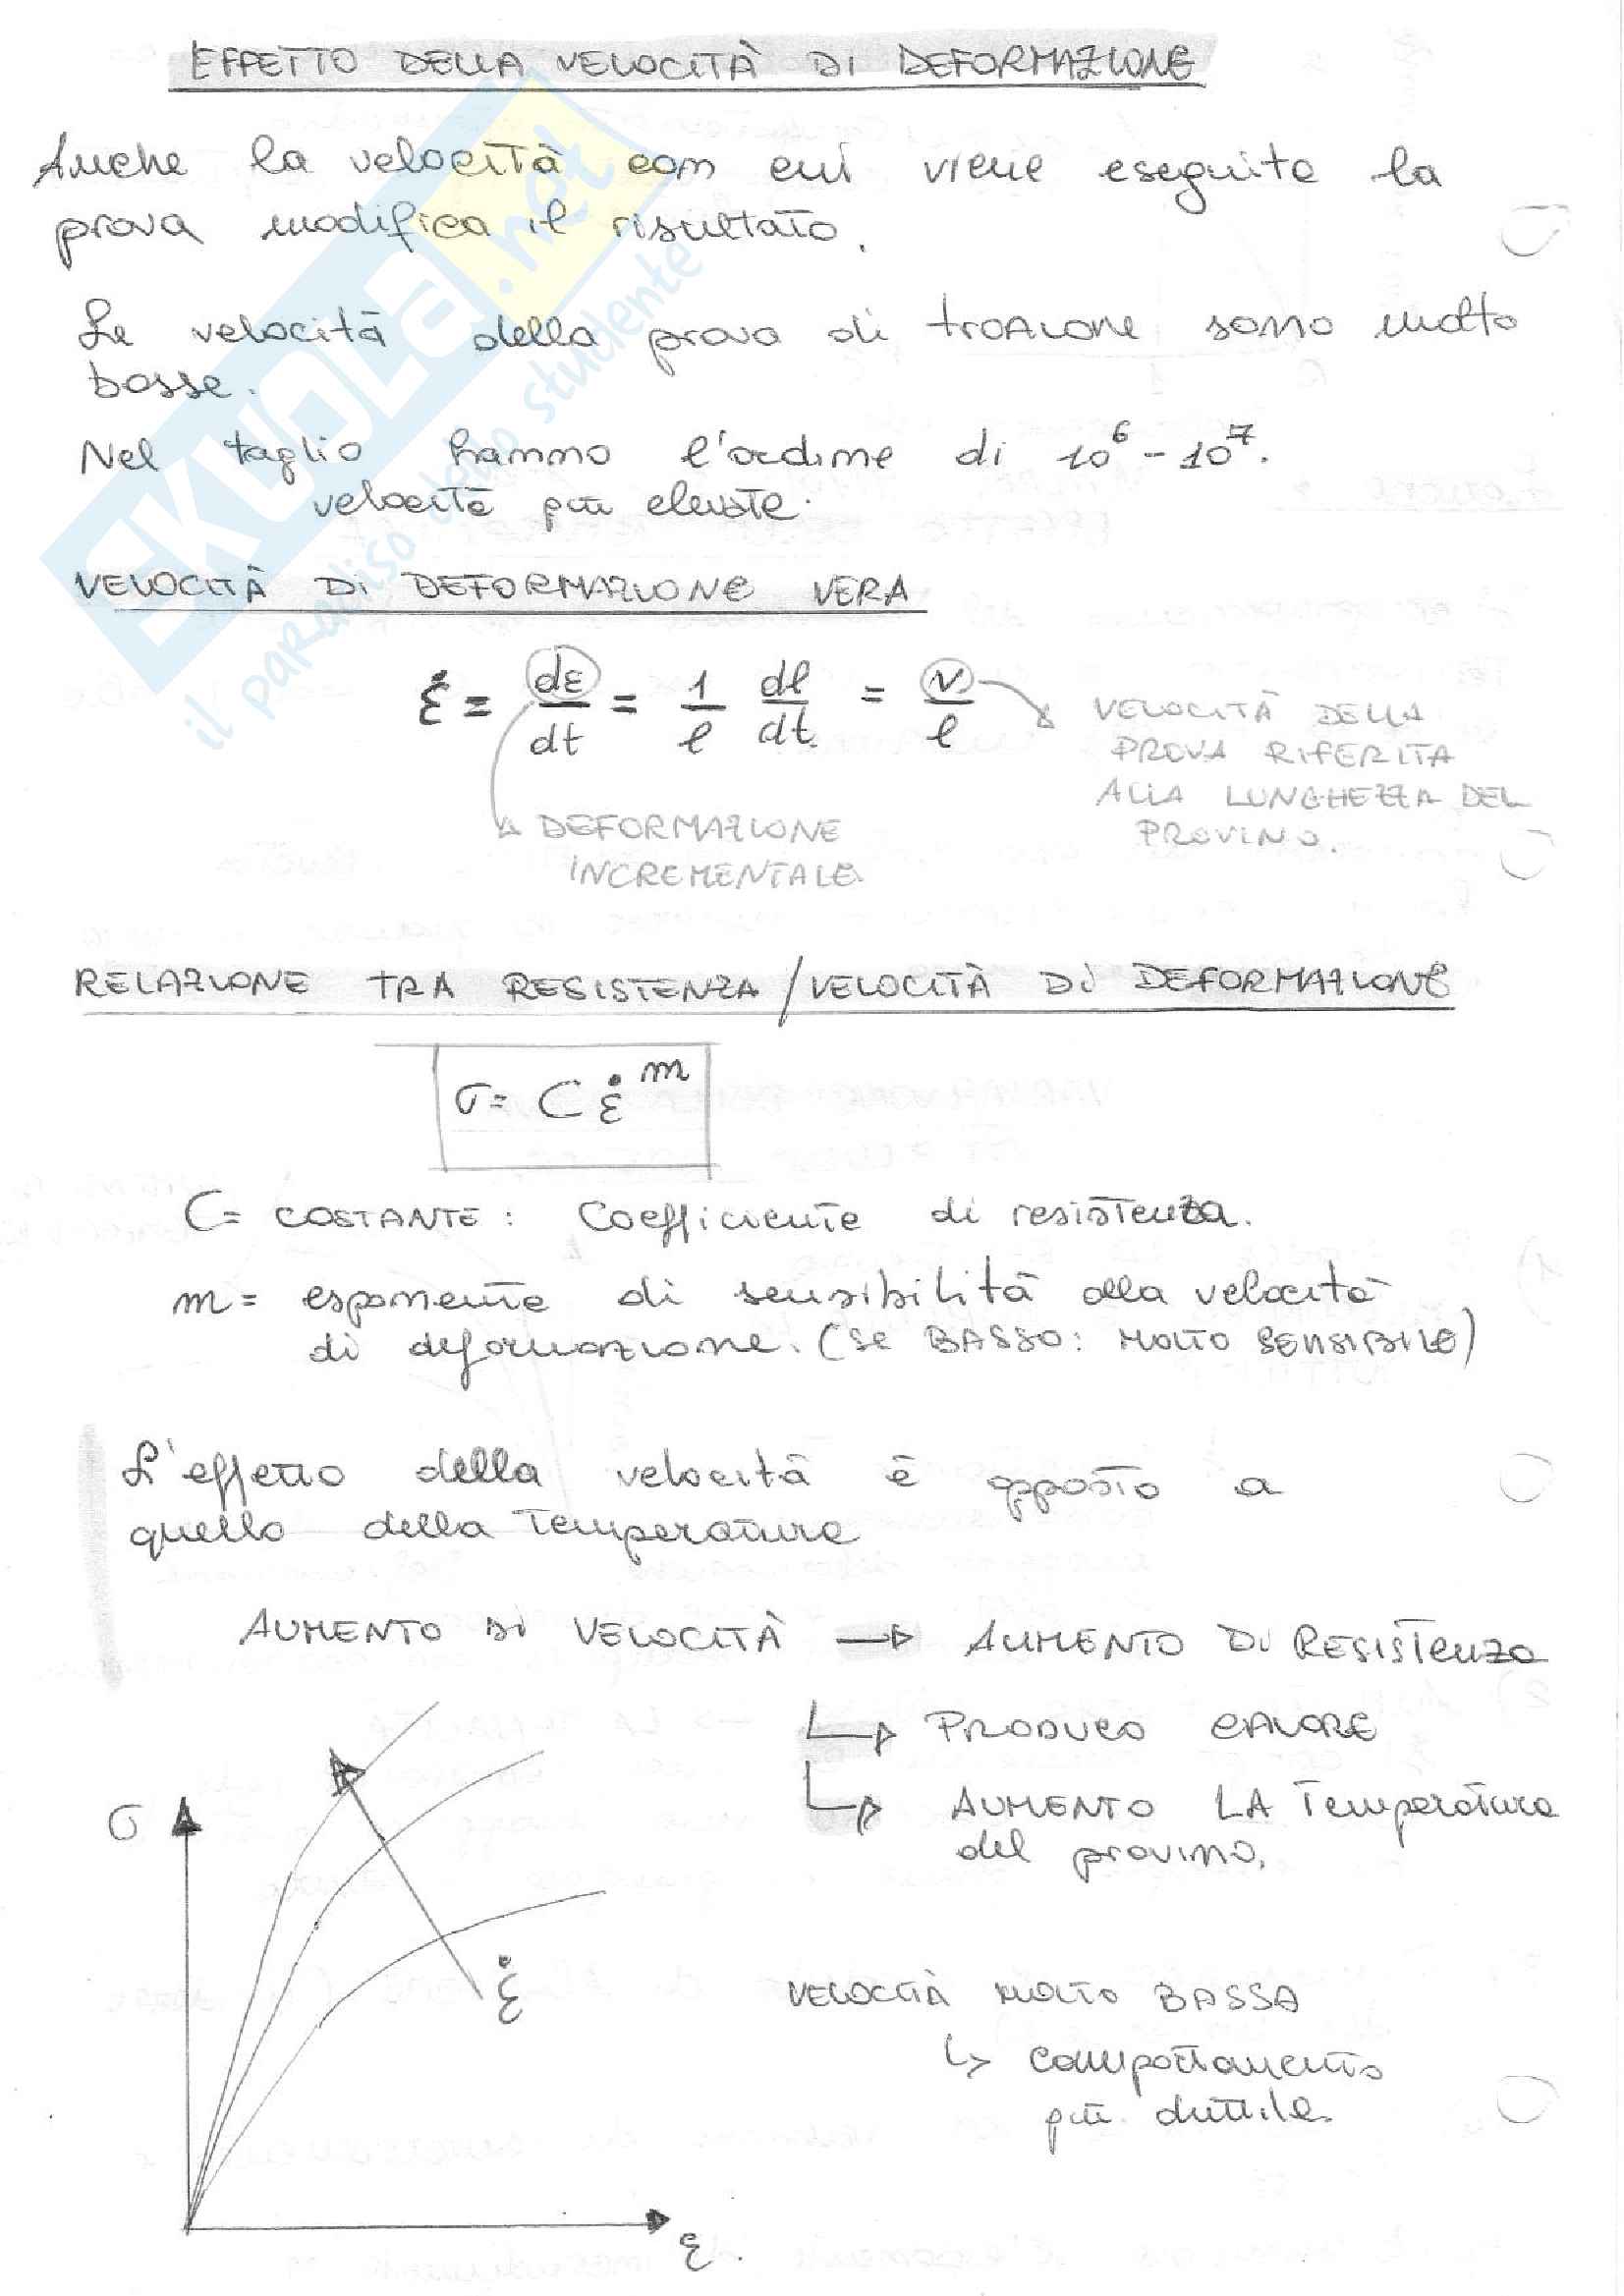 EFFETTO DELLA VELOCITÀ DI DEFORMAZIONE
Anche la velocità con cui viene eseguita la
prova modifica il risultato.
Le velocità della prova di trazione sono molto
basse.
Nel taglio hanno l'ordine di 10^6 - 10^7.
velocità più elevate.
VELOCITÀ DI DEFORMAZIONE VERA
ε̇ = dε/dt = 1/l dl/dt = v/l
VELOCITÀ DELLA
PROVA RIFERITA
ALLA LUNGHEZZA DEL
PROVINO.
DEFORMAZIONE
INCREMENTALE
RELAZIONE TRA RESISTENZA/VELOCITÀ DI DEFORMAZIONE
σ = C ε̇^m
C = COSTANTE: Coefficiente di resistenza.
m = esponente di sensibilità alla velocità
di deformazione. (se BASSO: MOLTO SENSIBILE)
L'effetto della velocità è opposto a
quello della Temperatura
AUMENTO DI VELOCITÀ → AUMENTO DI RESISTENZA
↳ PRODUCO CALORE
↳ AUMENTO LA Temperatura
del provino.
σ
ε̇
VELOCITÀ MOLTO BASSA
↳ comportamento
più duttile.
ε.
SKUOLA.net
il paradiso dello studente